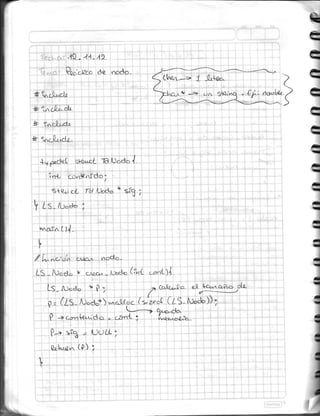 Fecha: 12.11.12
Tema: Ejercicio de nodo.
char → 1 letra
char * → un string. Ej: nombre
# include
# include
# include
# include
typedef struct TdNodo {
int contenido;
struct TdNodo * sig;
} LS_Nodo;
main () {
}
// función crear nodo.
LS_Nodo * crear_Nodo (int cont) {
LS_Nodo * P;
calcula el tamaño de
P = (LS_Nodo*) malloc (sizeof (LS_Nodo));
guarda memoria.
P → contenido = cont;
P → sig = NULL;
Return (P);
}